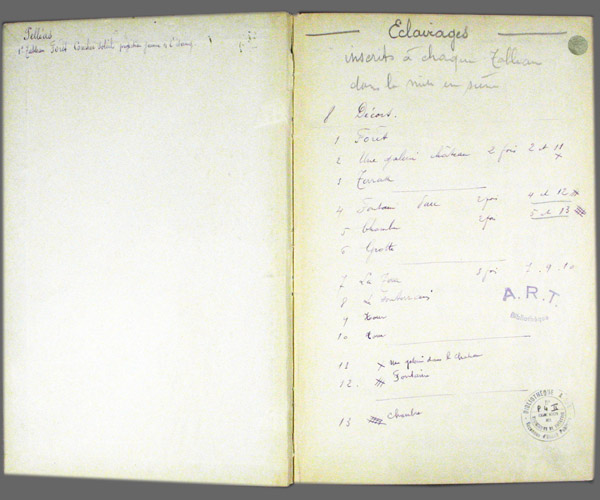 Pelléas
1er Tableau Forêt
Eclairages
inscrits à chaque Tableau
dans la mise en scène
8 Décors.
1 Forêt
2 Une galerie château 2 fois 2 et 11 x
3 Terrasse
4 Fontaine Parc 2 fois 4 et 12 #
5 Chambre 2 fois 5 et 13 #
6 Grotte
7 La Tour 3 fois 7.9.10
8 Le Souterrain
9 Tour
10 Tour
11 x Une galerie dans le château
12. # Fontaine
13 # Chambre
A.R.T.
Bibliothèque
BIBLIOTHÈQUE